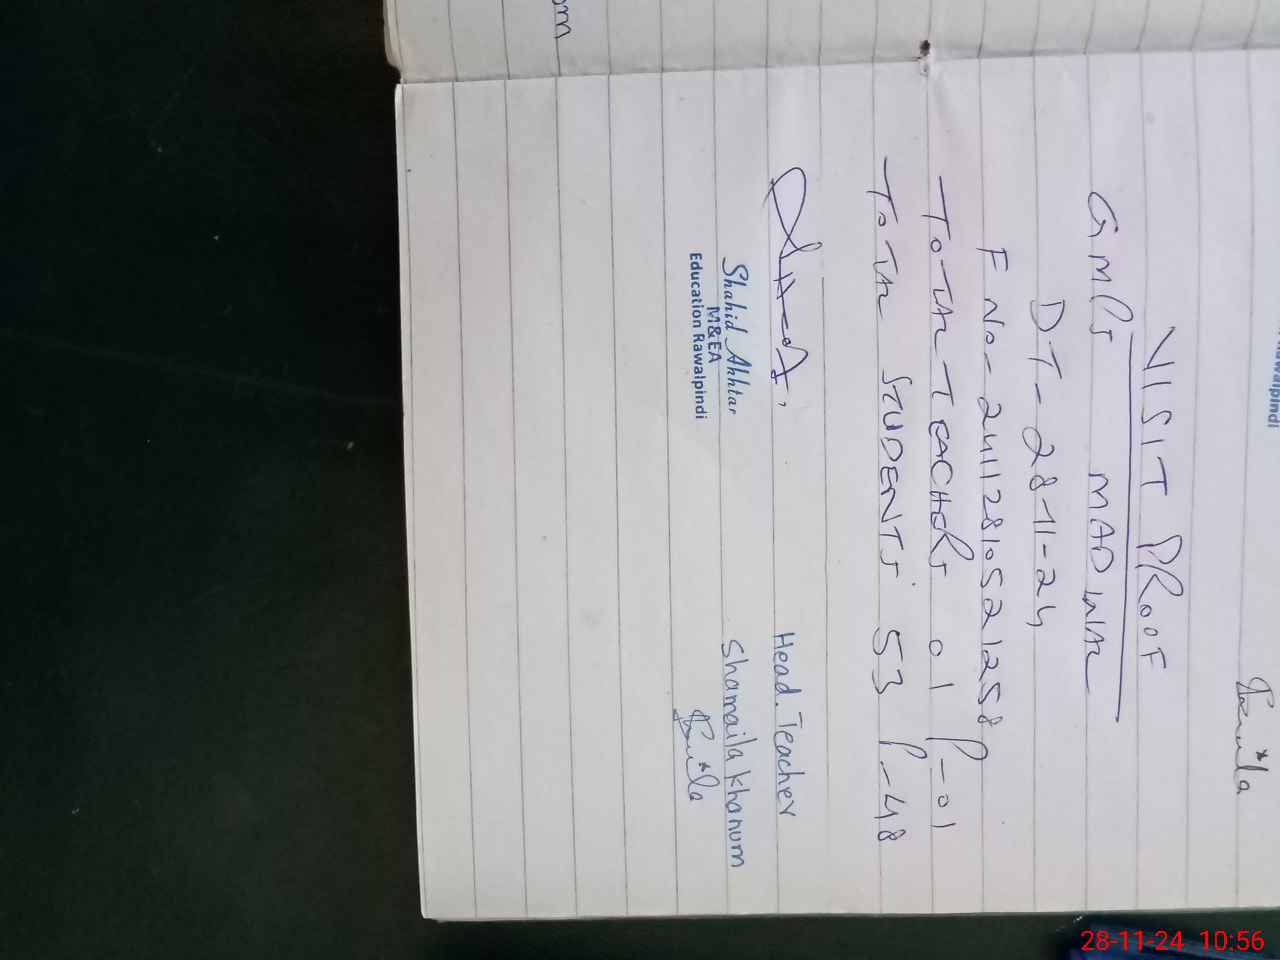 VISIT PROOF
GMPS MADINA
DT-28-11-24
F No- 24112810521258
TOTAL TEACHERS 01 P-01
TOTAL STUDENTS 53 P-48
Head. Teacher
Shahid Akhtar
Shamaila Khanum
M&EA
Education Rawalpindi
28-11-24 10:56